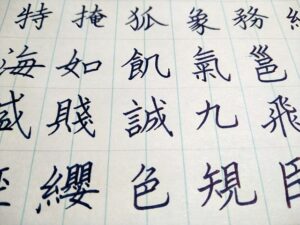 特掩狐象務
海如飢氣邕
賤誠九飛
纓色規臣